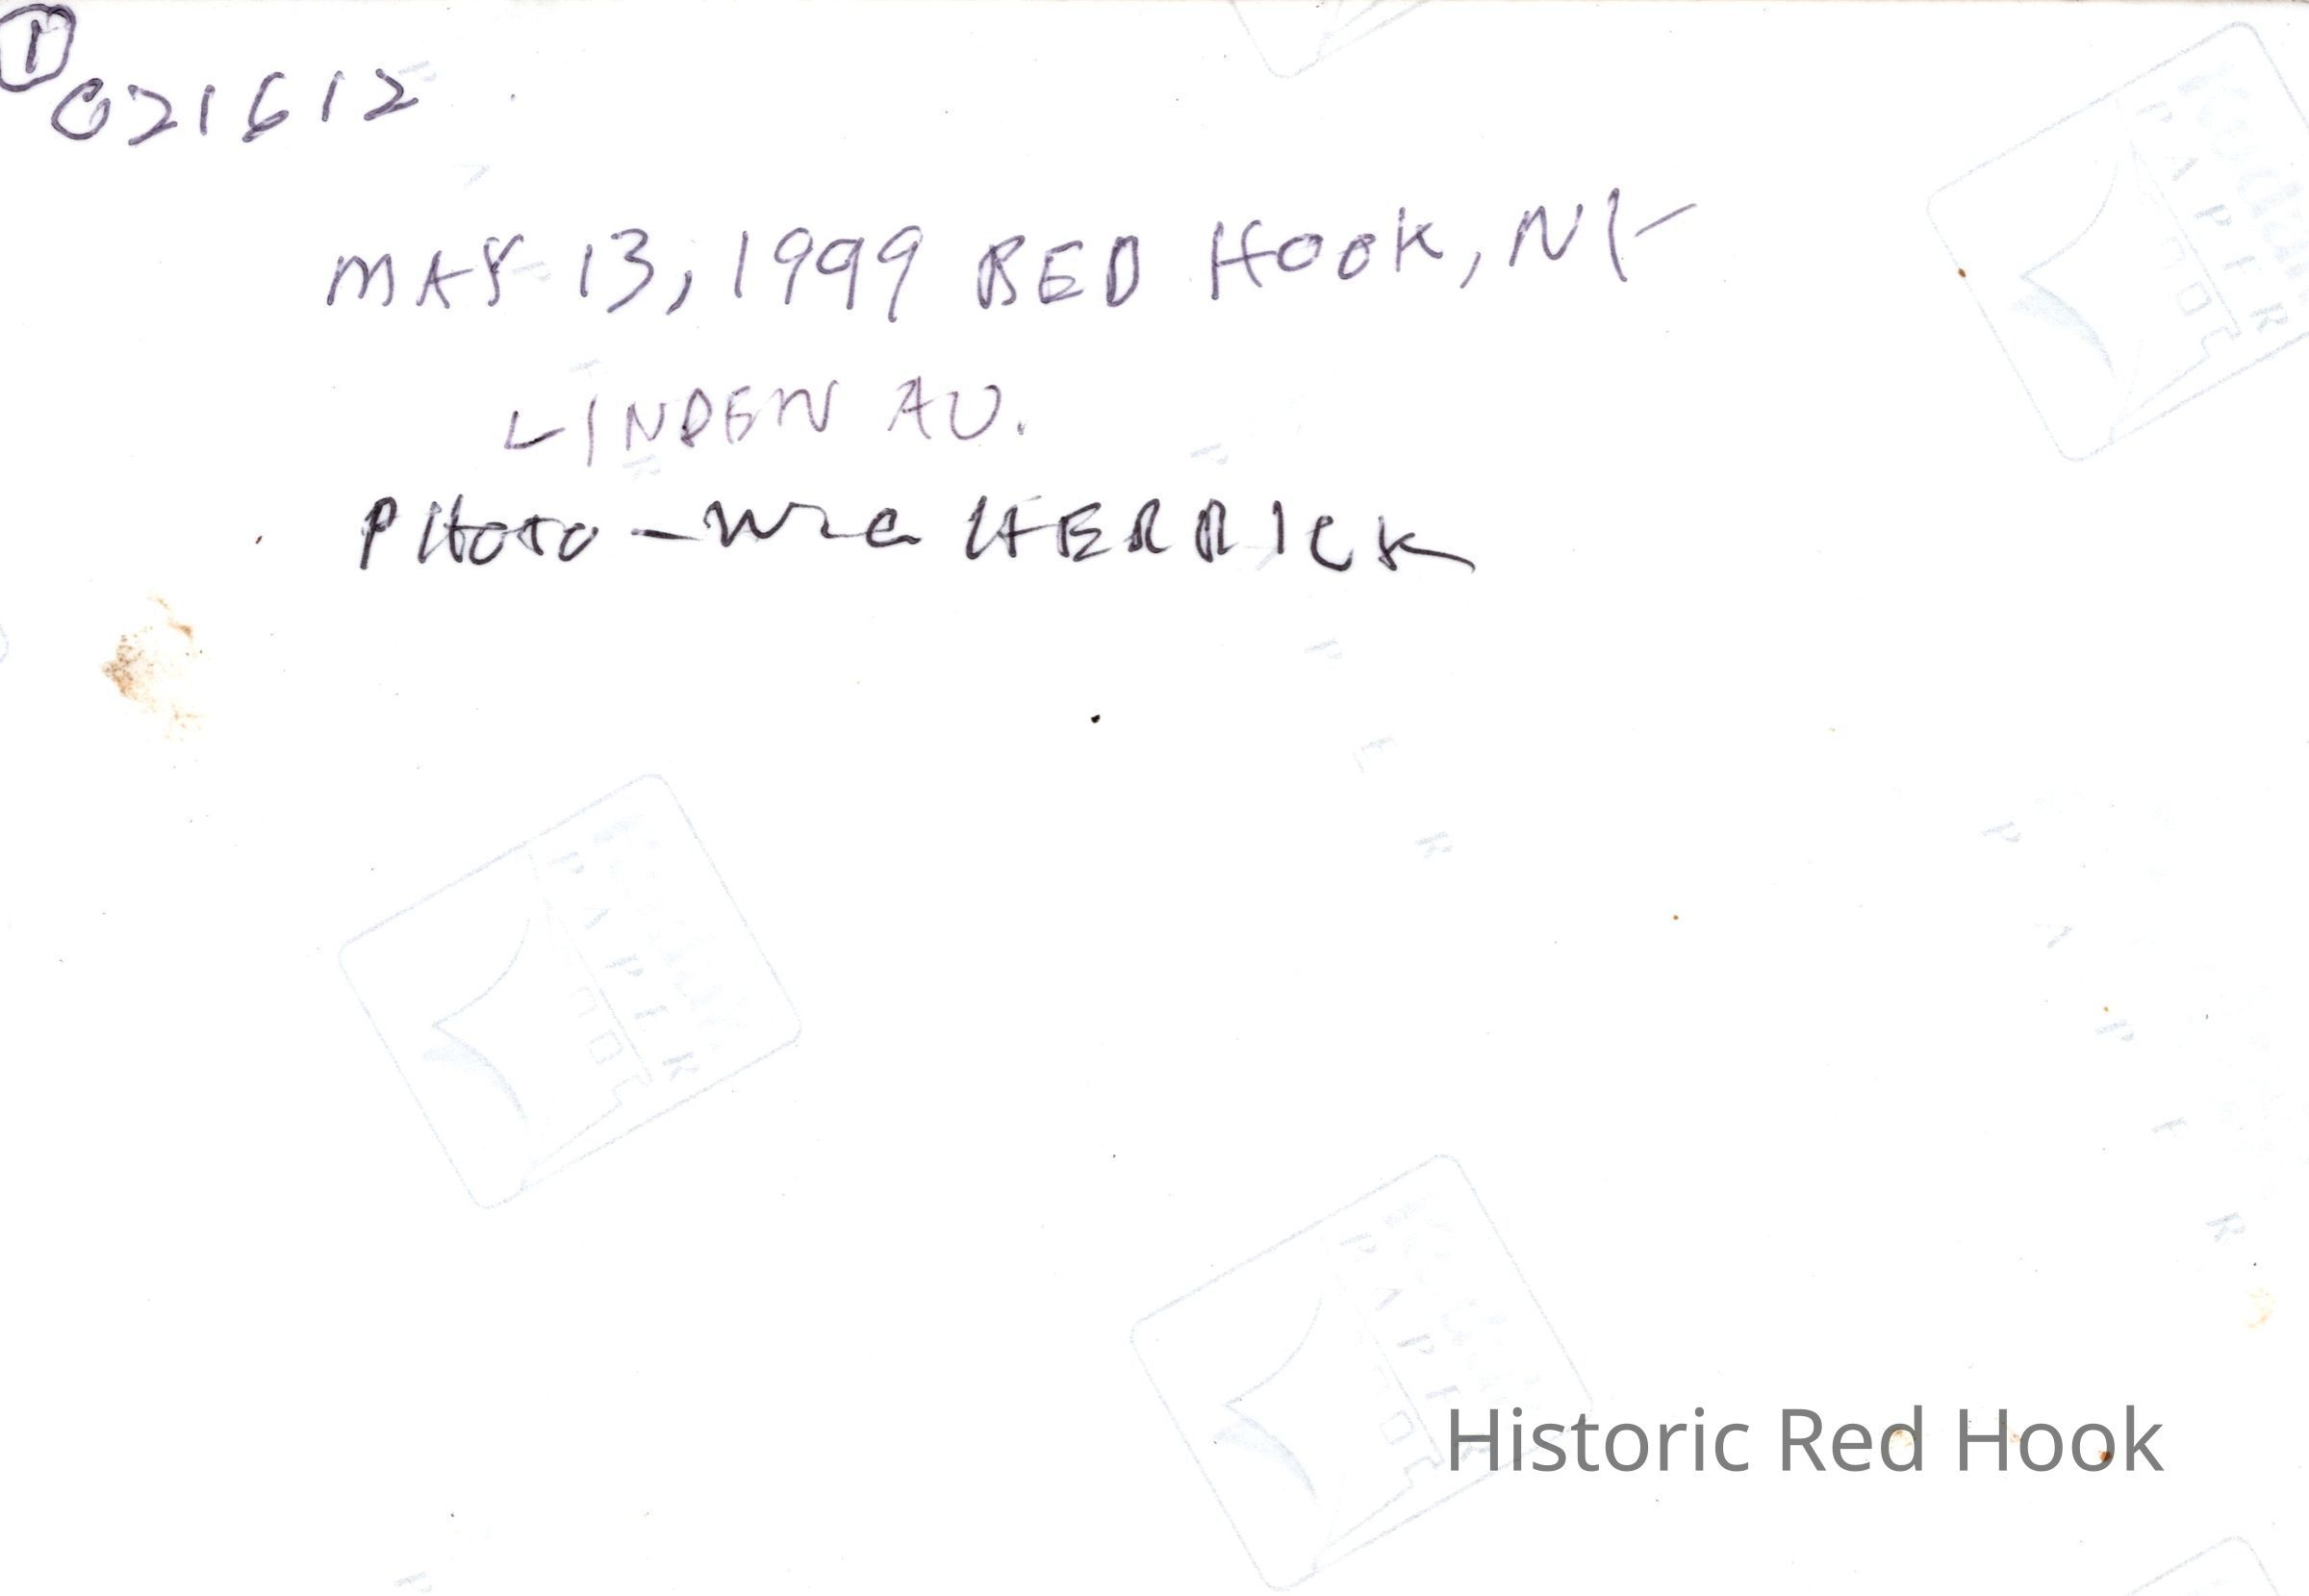 1
021612
MAY 13, 1999 RED HOOK, NY
LINDEN AV.
PHOTO - HERRICK
Kodak
PAPER
Historic Red Hook